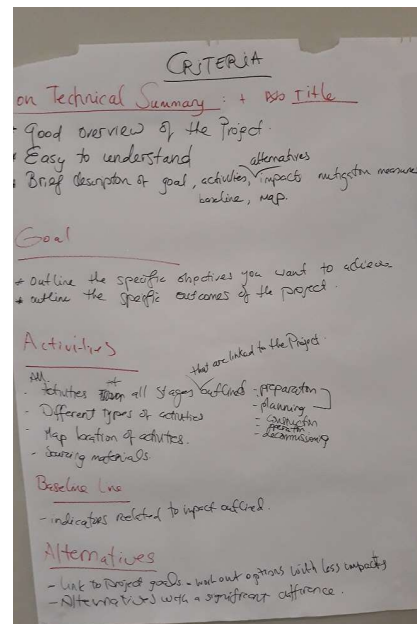 CRITERIA
on Technical Summary : + Title
- Good overview of the Project.
• Easy to understand
alternatives
• Brief description of goal, activities, impacts mitigation measure
baseline, map.
Goal
* outline the specific objectives you want to achieve
* outline the specific outcomes of the project.
Activities
that are linked to the Project.
Activities at all stages outlined - preparation
- planning
- construction
- operation
- decommissioning
- Different Types of activities
- Map location of activities.
- Sourcing materials
Baseline line
- indicators related to impact outlined.
Alternatives
- link to project goals - work out options with less impacts
- Alternatives with a significant difference.